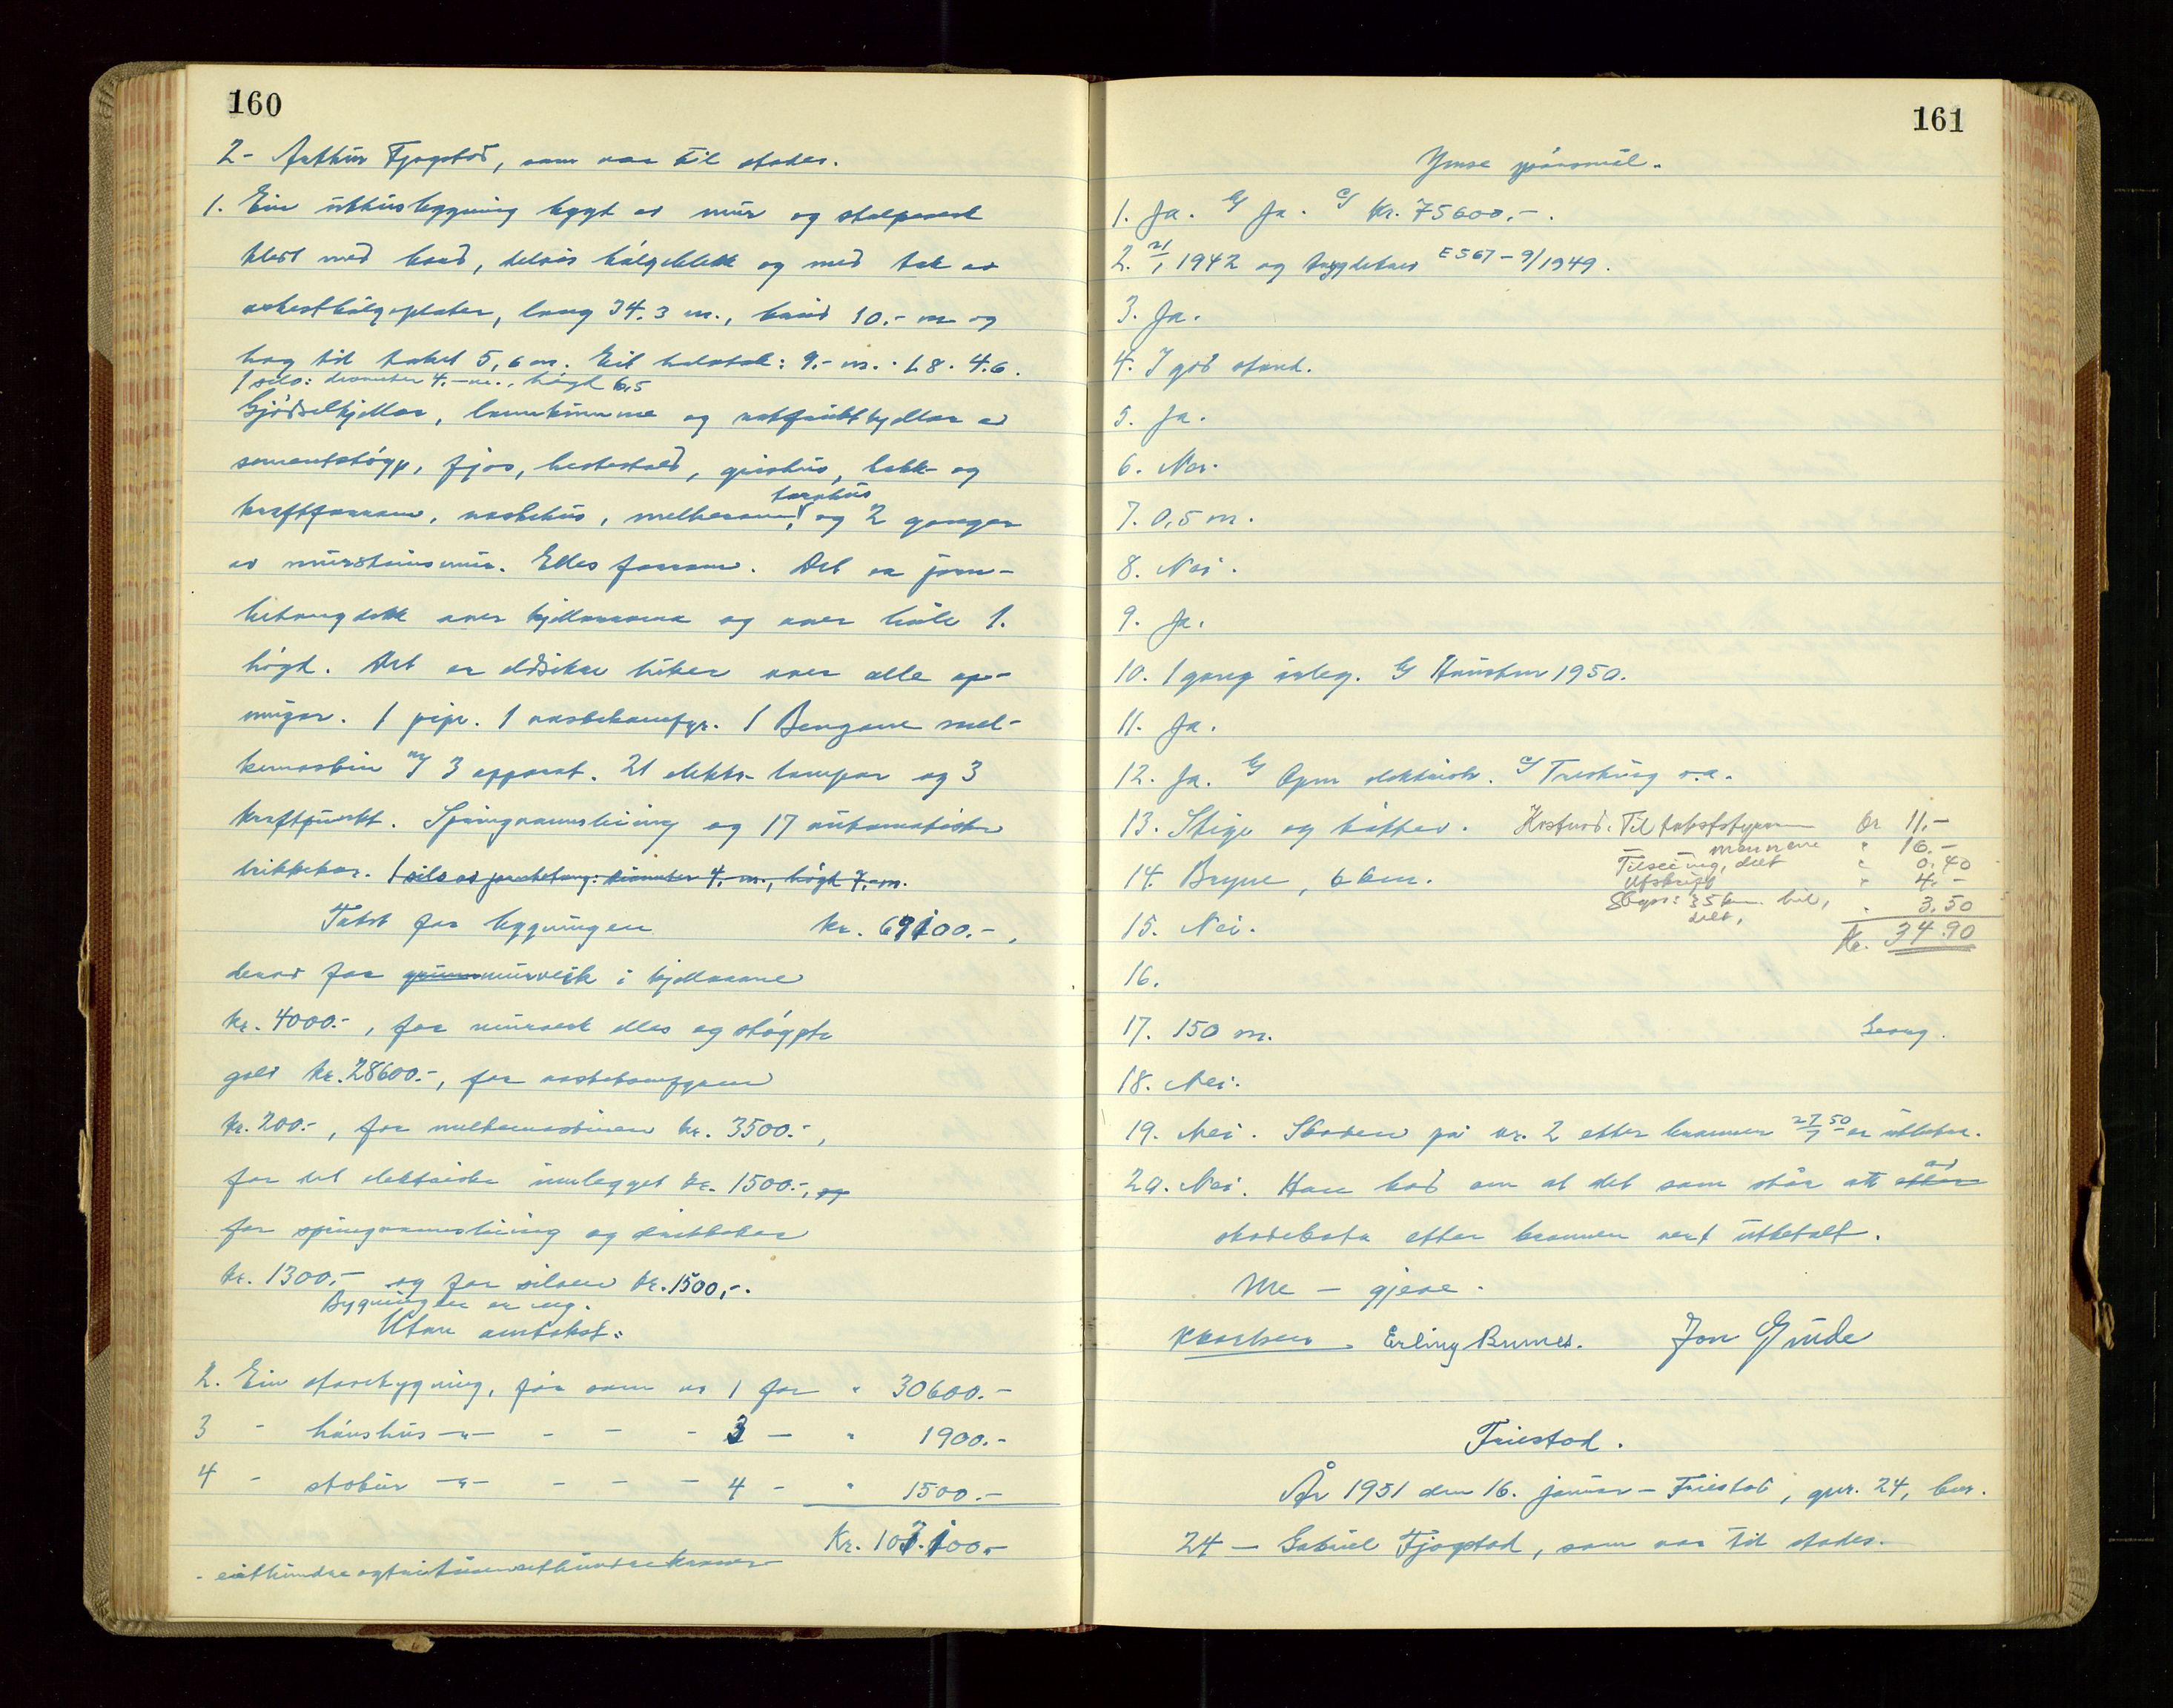 160
2 - Arthur Fjogstad, som var til stades.
1. Ein uthusbygning bygt av mur og stolpeverk
kledt med bord, delvis bølgeblekk og med tak av
asbestbølgeplater, lang 34.3 m., breid 10.- m og
høg til taket 5,6 m. Eit halvtak: 9.- m. · 1.8 · 4.6.
1 silo: diameter 4.- m., høgd 6,5
Gjødselkjellar, landkumme og rotfruktkjellar av
sementstøyp, fjos, hestestall, grishus, hakk- og
kraftforrom, vaskehus, melkerom, torvhus og 2 ganger
av mursteinsmur. Elles forrom. Det er jern-
betongdekk over kjellarrома og over heile 1.
høgd. Det er eldsikre bitar over alle op-
ningar. 1 pipe. 1 vaskekomfyr. 1 mel-
kemaskin m/ 3 apparat. 21 elektr. lampar og 3
kraftpunkt. Springvannsleiing og 17 automatiske
drikkekar. 1 silo av jernbetong: diameter 4.- m., høgd 7.- m.
Takst for bygningen kr. 69100.-,
derav for grunnmurverk i kjellarane
kr. 4000.-, for murverk elles og støypte
golv kr. 28600.-, for vaskekomfyren
kr. 200.-, for melkemaskinen kr. 3500.-,
for det elektriske innlegget kr. 1500.-, og
for springvannsleiing og drikkekar
kr. 1300.- og for siloen kr. 1500,-.
Bygningen er ny.
Utan omtakst:
2. Ein stovebygning, før som nr 1 for " 30600.-
3 - hønshus -"- - - - 3 - " 1900.-
4 - stabur -"- - - - 4 - " 1500.-
Kr. 103.100.-
- eithundre og tri tusen eithundre kroner -
161
Ymse spørsmål.
1. Ja. b/ Ja. c/ Kr. 75600.-.
2. 21/1 1942 og trygdebrev E 567 - 9/1949.
3. Ja.
4. I god stand.
5. Ja.
6. Nei.
7. 0,5 m.
8. Nei.
9. Ja.
10. 1 gang årleg. b/ Hausten 1950.
11. Ja.
12. Ja. b/ Open elektrisk. c/ Tresking o.a.
13. Stige og bøtter. Kostnad: Til takststyraren kr 11.-
mennene " 16.-
Tilseiing, delt " 0.40
14. Bryne, 6 km. Utskrift " 4.-
Skyss: 35 km. bil, delt, " 3.50
15. Nei. Kr. 34.90
16.
17. 150 m.
18. Nei.
19. Nei. Skaden på nr. 2 etter brannen 27/7 50 er utbetra.
20. Nei. Han bad om at det som står att etter av
skadebota etter brannen vert utbetalt.
Me - gjeve.
Erling Brunes. Jon Grude
Friestad.
År 1951 den 16. januar - Friestad, gnr. 24, bnr.
24 - Gabriel Fjogstad, som var til stades.